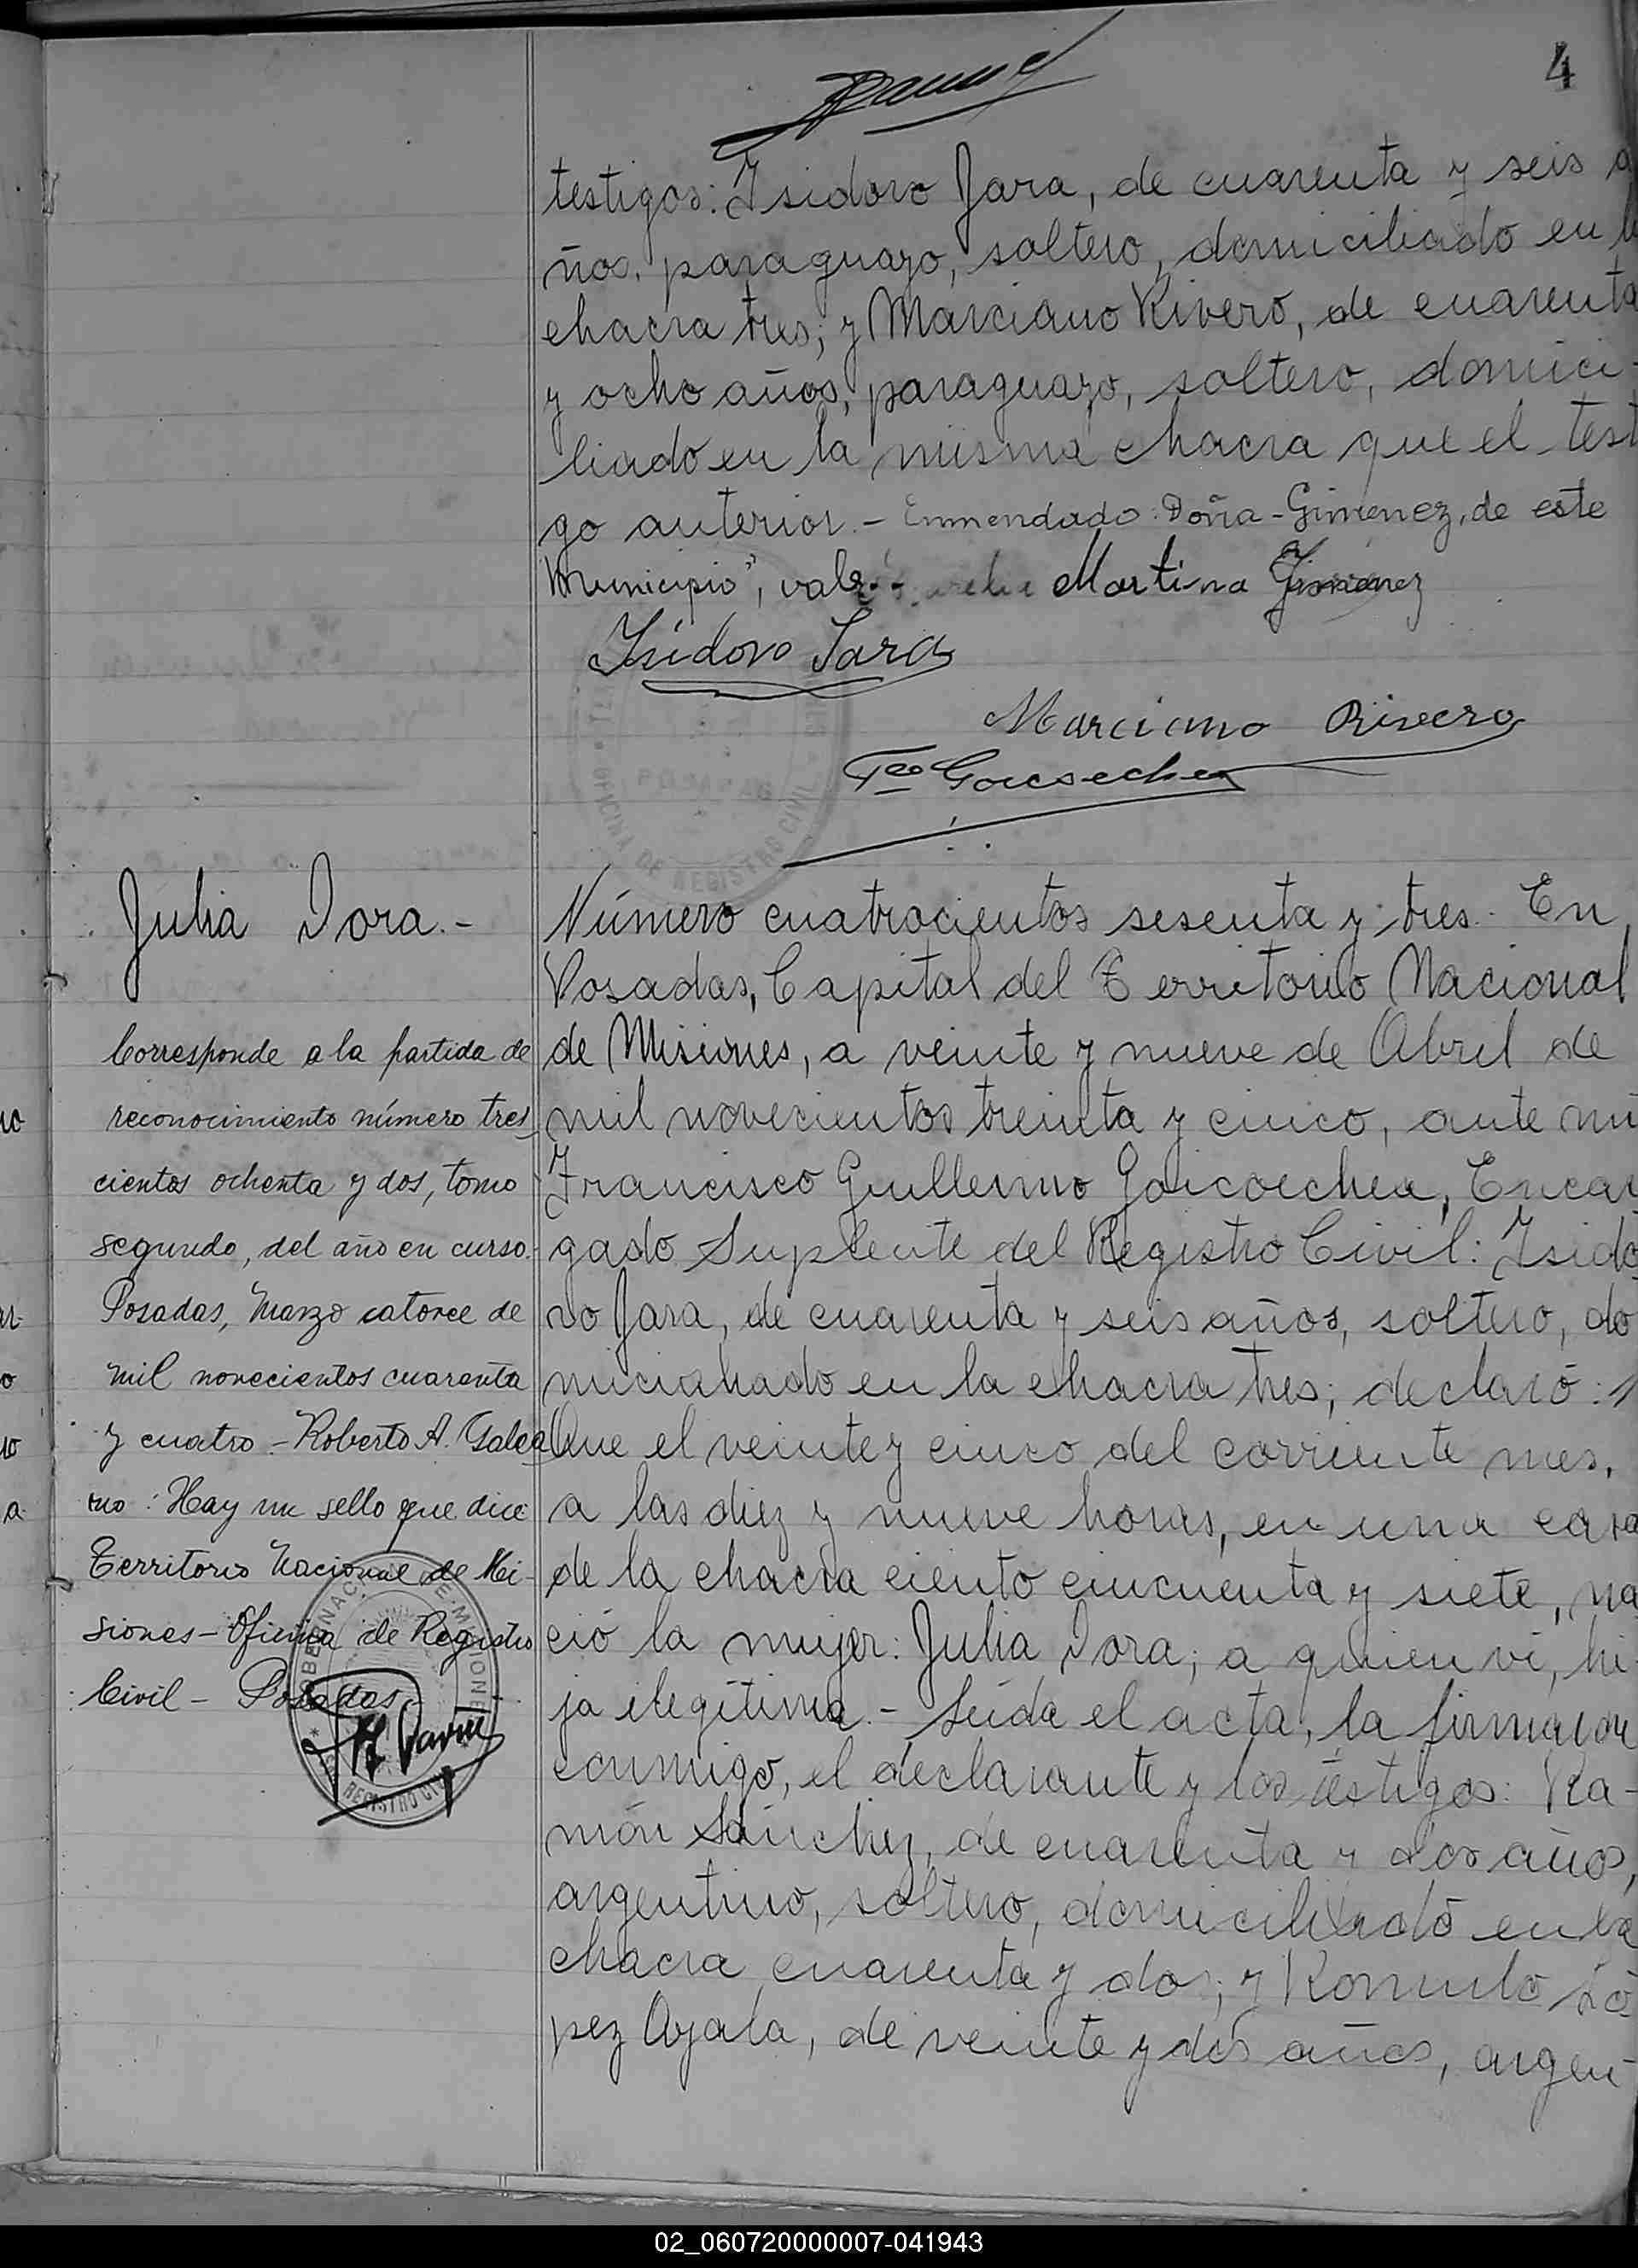 4
testigos: Isidoro Jara, de cuarenta y seis a
ños, paraguayo, soltero, domiciliado en la
chacra tres; y Marciano Rivero, de cuarenta
y ocho años, paraguayo, soltero, domici-
liado en la misma chacra que el testi
go anterior.- Enmendado: Doña-Gimenez, de este
Municipio", vale.- Martina Gimenez
Isidoro Jara
Marciano Rivero
Fco Goicoechea
OFICINA DE REGISTRO CIVIL
POSADAS
Julia Dora.-
Corresponde a la partida de
reconocimiento número tres
cientos ochenta y dos, tomo
segundo, del año en curso.-
Posadas, Marzo catorce de
mil novecientos cuarenta
y cuatro - Roberto A. Galea
no: Hay un sello que dice
Territorio Nacional de Mi-
siones - Oficina de Registro
Civil - Posadas.-
Número cuatrocientos sesenta y tres.- En
Posadas, Capital del Territorio Nacional
de Misiones, a veinte y nueve de Abril de
mil novecientos treinta y cinco, ante mi
Francisco Guillermo Goicoechea, Encar
gado Suplente del Registro Civil: Isido
ro Jara, de cuarenta y seis años, soltero, do
miciliado en la chacra tres; declaró:
Que el veinte y cinco del corriente mes,
a las diez y nueve horas, en una casa
de la chacra ciento cincuenta y siete, na
ció la mujer: Julia Dora; a quien vi, hi
ja ilegítima.- Leída el acta, la firmaron
conmigo, el declarante y los testigos: Ra-
món Sánchez, de cuarenta y dos años,
argentino, soltero, domiciliado en la
chacra cuarenta y dos; y Romulo Ló
pez Ayala, de veinte y dos años, argen-
02_060720000007-041943